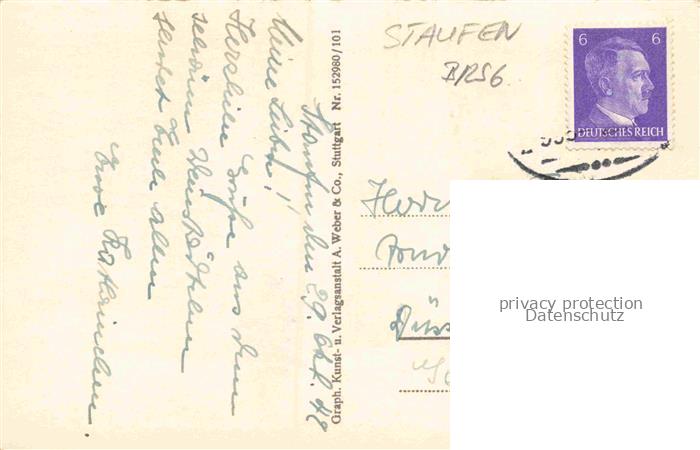 Staufen den 29. Okt. 42
Meine Lieben!
Herzliche Grüße aus dem
schönen Weinstädtchen
sendet Euch allen
Eure Kathrinchen.
Graph. Kunst- u. Verlagsanstalt A. Weber & Co., Stuttgart Nr. 152980/101
STAUFEN
BRSG.
6 6
DEUTSCHES REICH
Herr
Düss
privacy protection
Datenschutz